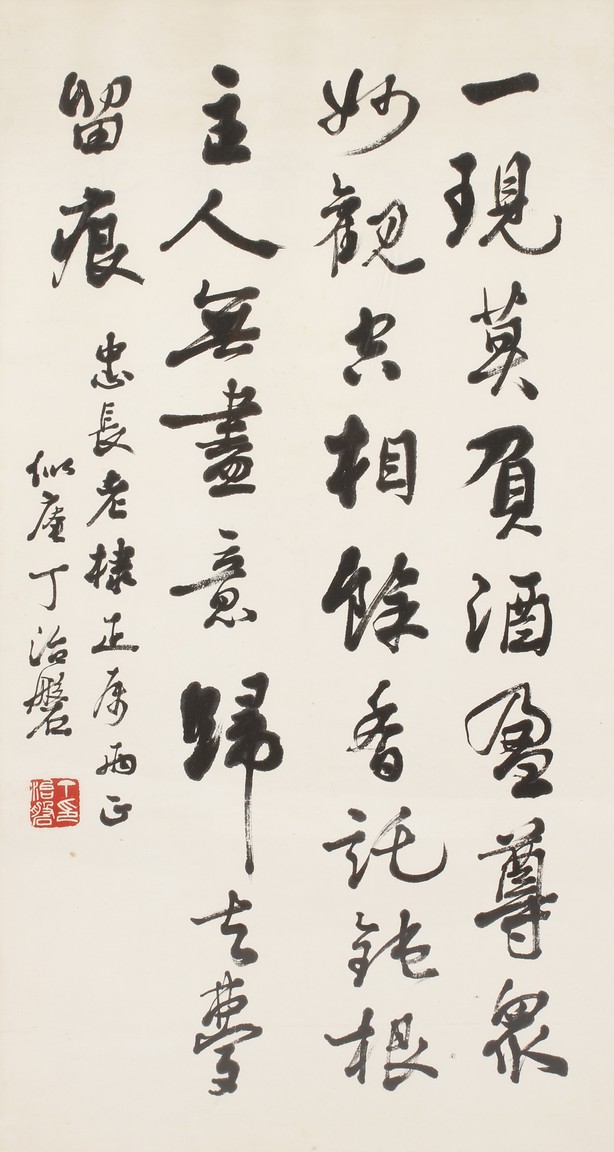 一現莫負酒盈尊眾
妙觀空相餘香託鈍根
主人無盡意歸去夢
留痕
忠長老棣正屬正
似庵丁治磐
丁印治磐